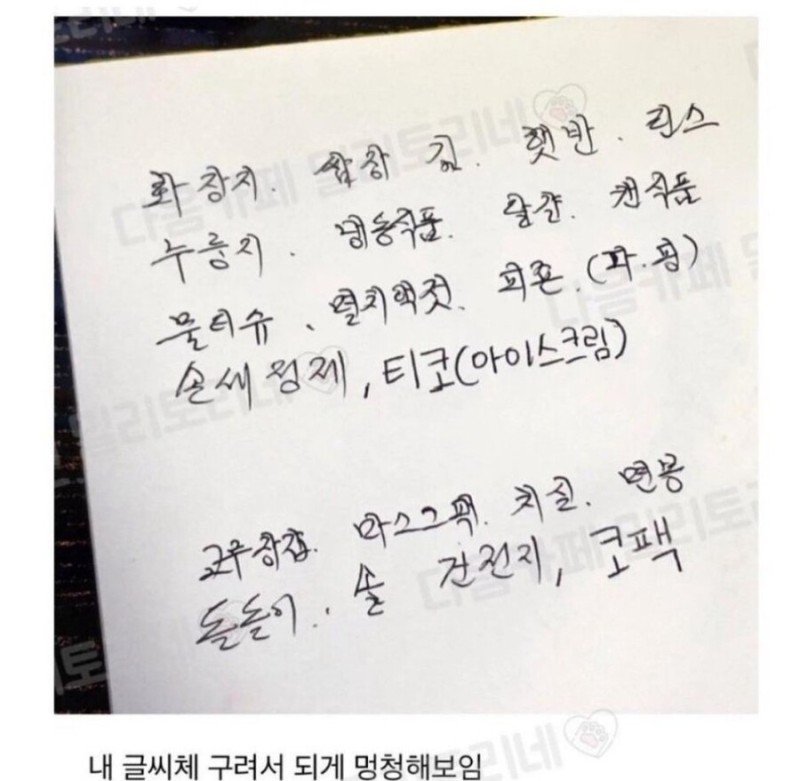 화장지. 쌈장 김. 햇반. 린스
누룽지. 냉동식품. 달걀. 캔식품
물티슈. 멸치액젓. 피죤 (파.핑)
손세정제, 티코(아이스크림)
고무장갑. 마스크팩. 치실. 면봉
돌돌이.. 솔 건전지, 코팩
내 글씨체 구려서 되게 멍청해보임
다음카페 밀리토리네